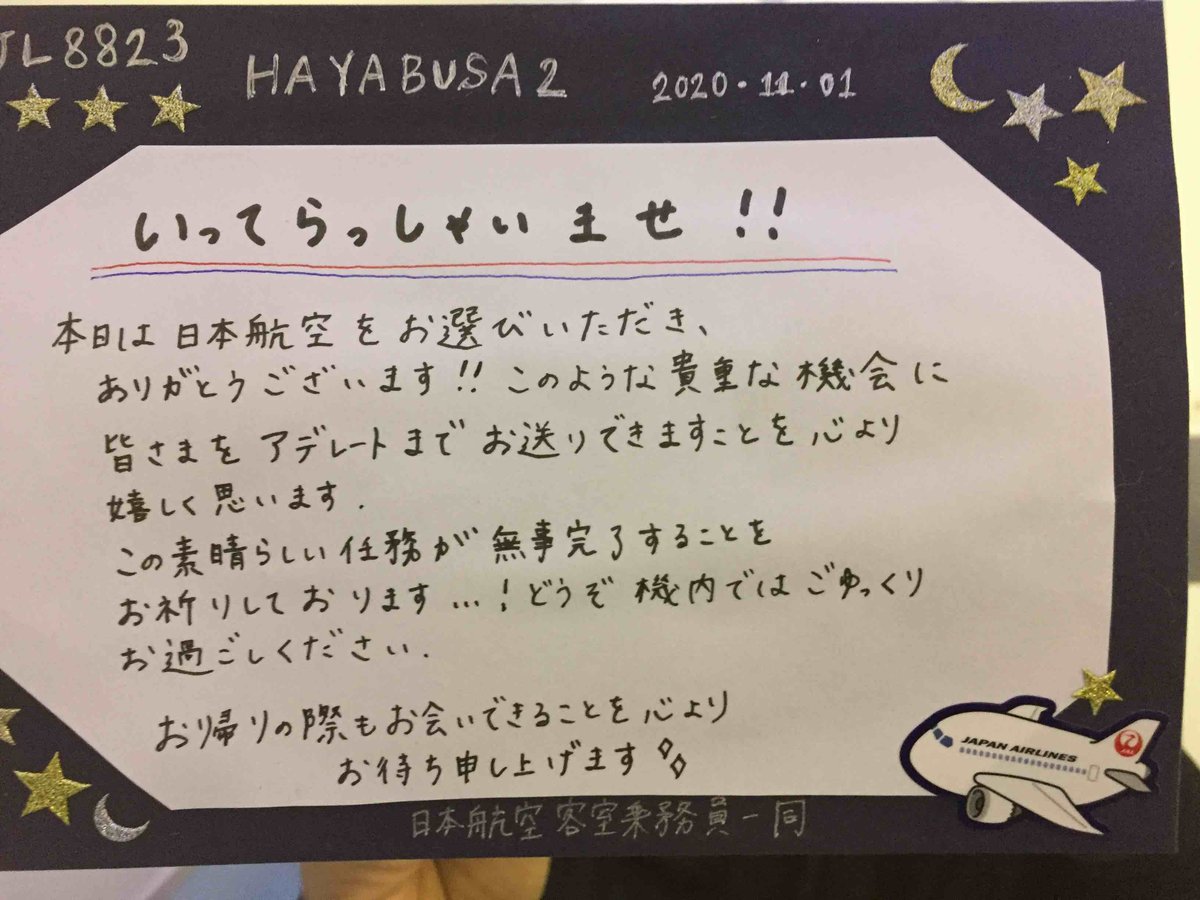 JL8823
HAYABUSA2
2020.11.01
いってらっしゃいませ!!
本日は日本航空をお選びいただき、
ありがとうございます!!このような貴重な機会に
皆さまをアデレートまでお送りできますことを心より
嬉しく思います.
この素晴らしい任務が無事完了することを
お祈りしております...!どうぞ機内ではごゆっくり
お過ごしください.
お帰りの際もお会いできることを心より
お待ち申し上げます
JAPAN AIRLINES
JAL
日本航空客室乗務員一同